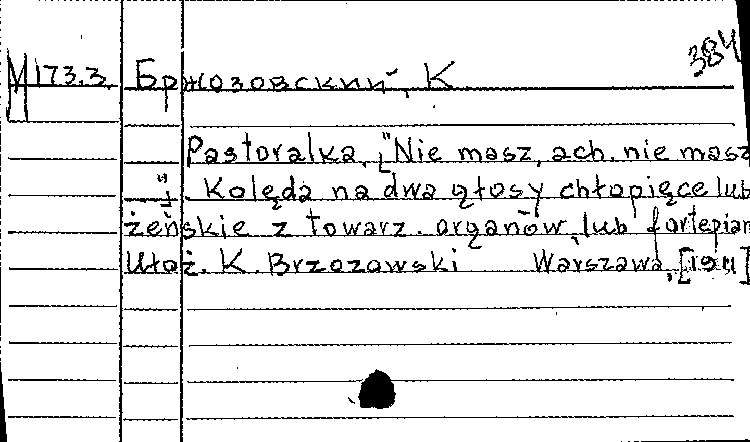 384
М 173.3. Бржозовский, К
Pastoralka, ["Nie masz, ach, nie masz
"]. Kolęda na dwa głosy chłopięce lub
żeńskie z towarz. organów, lub fortepian
Ułoż. K. Brzozowski Warszawa,